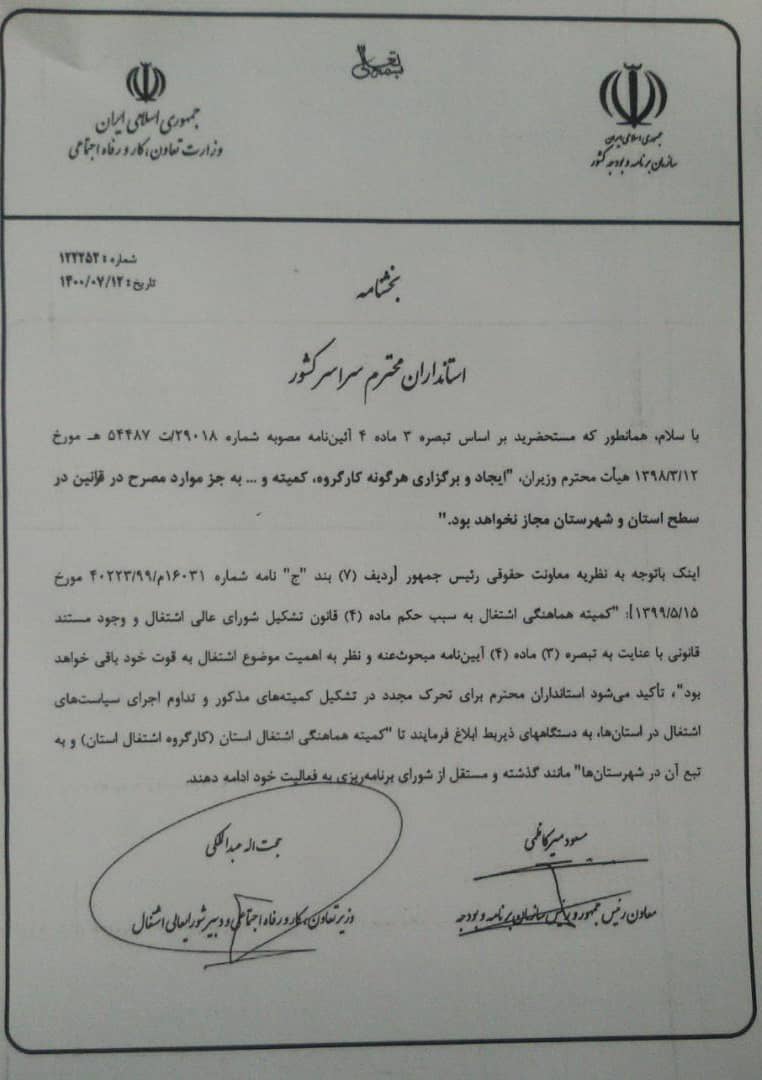 بسمه تعالی
جمهوری اسلامی ایران
سازمان برنامه و بودجه کشور
جمهوری اسلامی ایران
وزارت تعاون، کار و رفاه اجتماعی
شماره: ۱۲۲۲۵۲
تاریخ: ۱۴۰۰/۰۷/۱۲
بخشنامه
استانداران محترم سراسر کشور
با سلام، همانطور که مستحضرید بر اساس تبصره ۳ ماده ۴ آئین‌نامه مصوبه شماره ۲۹۰۱۸/ت ۵۴۴۸۷ هـ مورخ
۱۳۹۸/۳/۱۲ هیأت محترم وزیران، "ایجاد و برگزاری هرگونه کارگروه، کمیته و ... به جز موارد مصرح در قوانین در
سطح استان و شهرستان مجاز نخواهد بود."
اینک باتوجه به نظریه معاونت حقوقی رئیس جمهور [ردیف (۷) بند "ج" نامه شماره ۱۶۰۳۱م/۴۰۲۲۳/۹۹ مورخ
۱۳۹۹/۵/۱۵]: "کمیته هماهنگی اشتغال به سبب حکم ماده (۴) قانون تشکیل شورای عالی اشتغال و وجود مستند
قانونی با عنایت به تبصره (۳) ماده (۴) آیین‌نامه مبحوث‌عنه و نظر به اهمیت موضوع اشتغال به قوت خود باقی خواهد
بود"، تأکید می‌شود استانداران محترم برای تحرک مجدد در تشکیل کمیته‌های مذکور و تداوم اجرای سیاست‌های
اشتغال در استان‌ها، به دستگاههای ذیربط ابلاغ فرمایند تا "کمیته هماهنگی اشتغال استان (کارگروه اشتغال استان) و به
تبع آن در شهرستان‌ها" مانند گذشته و مستقل از شورای برنامه‌ریزی به فعالیت خود ادامه دهند.
مسعود میرکاظمی
معاون رئیس جمهور و رئیس سازمان برنامه و بودجه
حجت اله عبدالملکی
وزیر تعاون، کار و رفاه اجتماعی و دبیر شورایعالی اشتغال